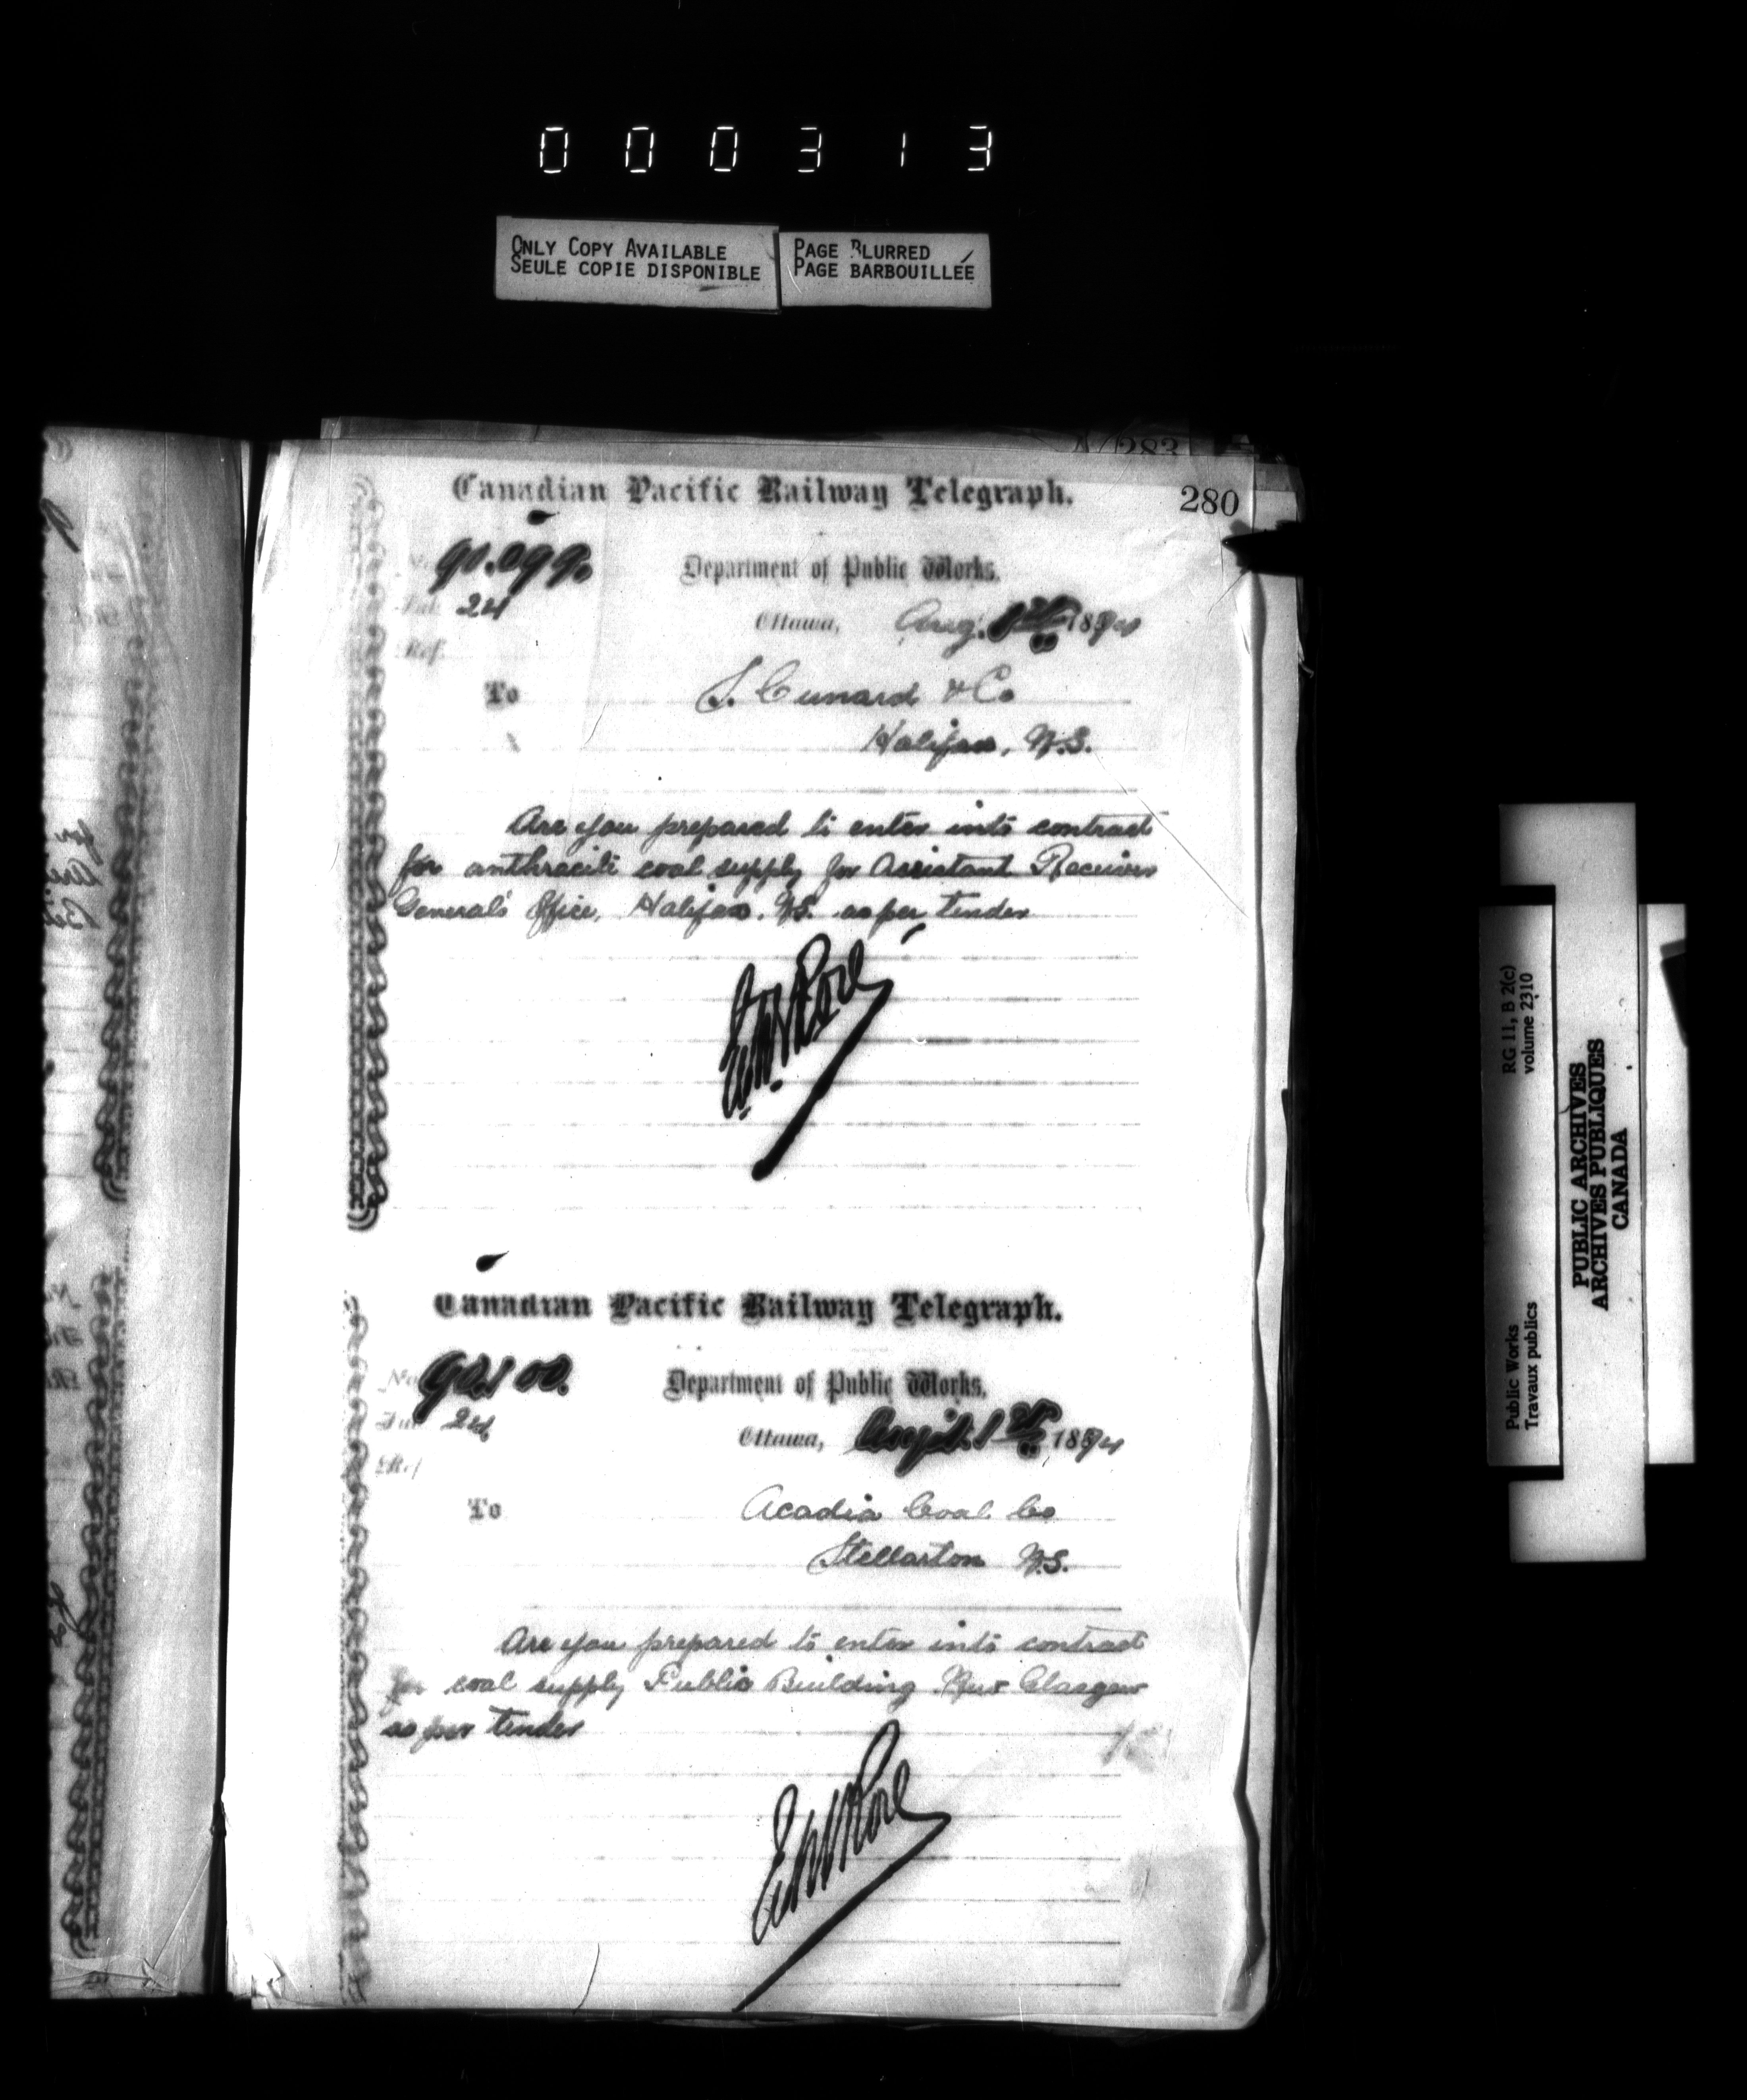 000313
ONLY COPY AVAILABLE
SEULE COPIE DISPONIBLE
PAGE BLURRED
PAGE BARBOUILLÉE
283
280
Canadian Pacific Railway Telegraph.
No. 90.099.
Department of Public Works.
Sub. 24
Ottawa, Aug. 1st 1894
Ref.
To S. Cunard & Co
Halifax, N.S.
Are you prepared to enter into contract
for anthracite coal supply for Assistant Receiver
General's Office, Halifax. N.S. as per tender
Canadian Pacific Railway Telegraph.
No. 90.100.
Department of Public Works.
Sub. 24
Ottawa, 1st 1894
Ref.
To Acadia Coal Co
Stellarton N.S.
Are you prepared to enter into contract
for coal supply Public Building New Glasgow
as per tender
RG 11, B 2(c)
volume 2310
Public Works
Travaux publics
PUBLIC ARCHIVES
ARCHIVES PUBLIQUES
CANADA